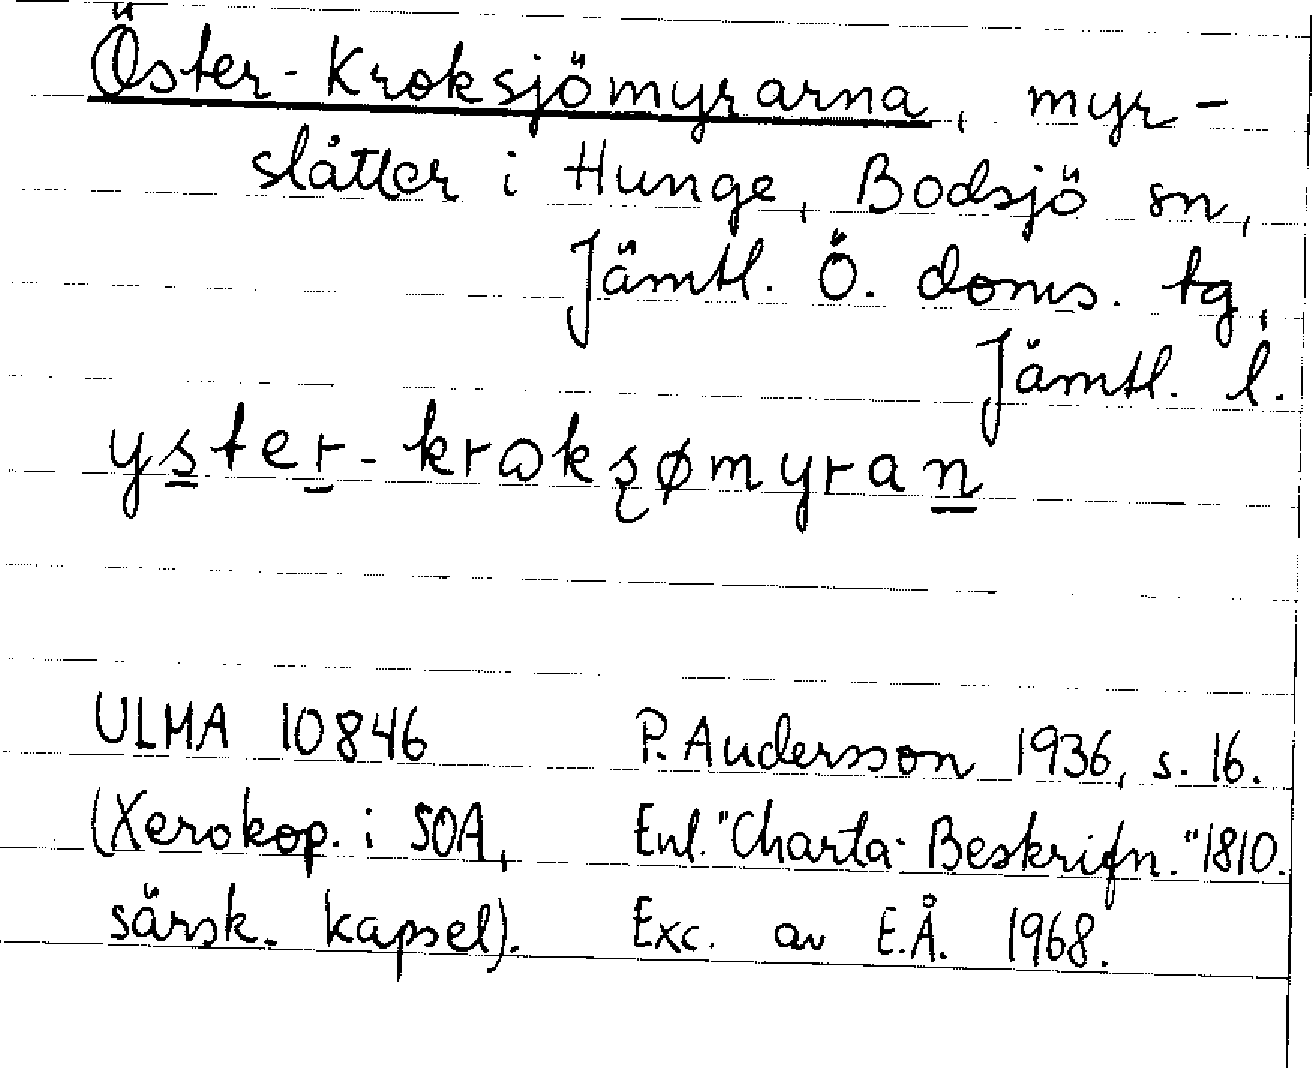 Öster-Kroksjömyrarna, myr-
slåtter i Hunge, Bodsjö sn,
Jämtl. Ö. doms. tg,
Jämtl. l.
yster-kroksømyran
ULMA 10846 P. Andersson 1936, s. 16.
(Xerokop. i SOA, Enl. "Charta-Beskrifn." 1810.
särsk. kapsel). Exc. av E.Å. 1968.